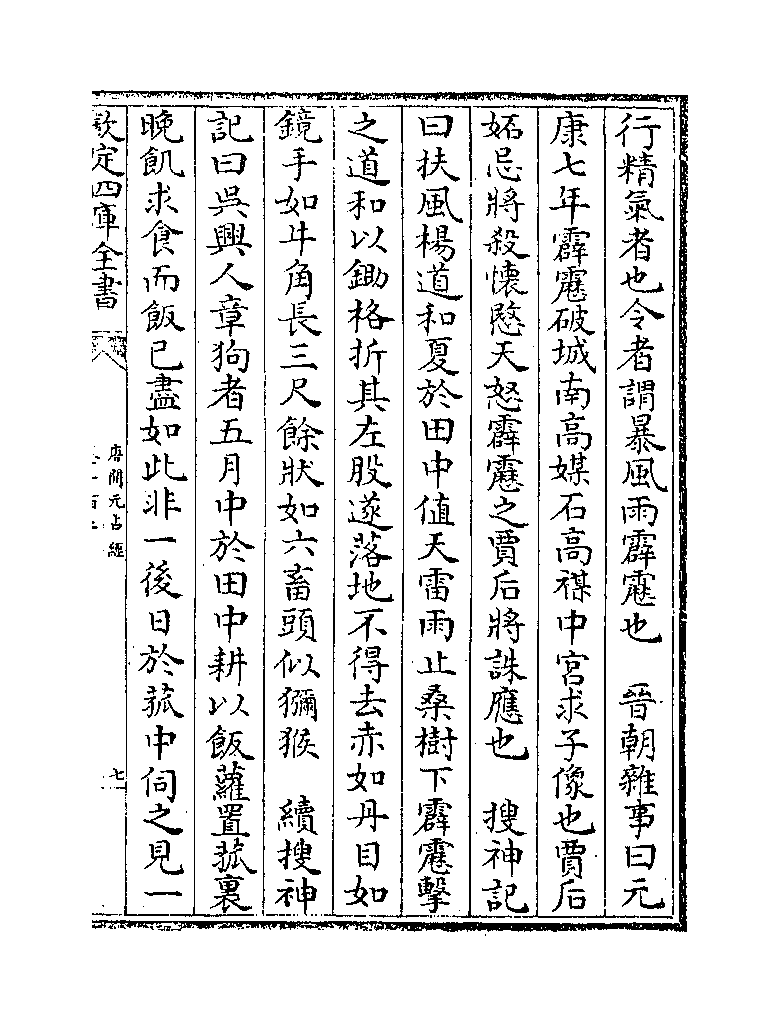 行精氣者也令者謂暴風雨霹靂也　晉朝雜事曰元
康七年霹靂破城南高媒石高禖中宮求子像也賈后
妬忌將殺懷愍天怒霹靂之賈后將誅應也　搜神記
曰扶風楊道和夏於田中值天雷雨止桑樹下霹靂擊
之道和以鋤格折其左股遂落地不得去赤如丹目如
鏡手如牛角長三尺餘狀如六畜頭似獼猴　續搜神
記曰吳興人章狗者五月中於田中耕以飯蘿置菰裏
晚飢求食而飯已盡如此非一後日於菰中伺之見一
欽定四庫全書
唐開元占經
七